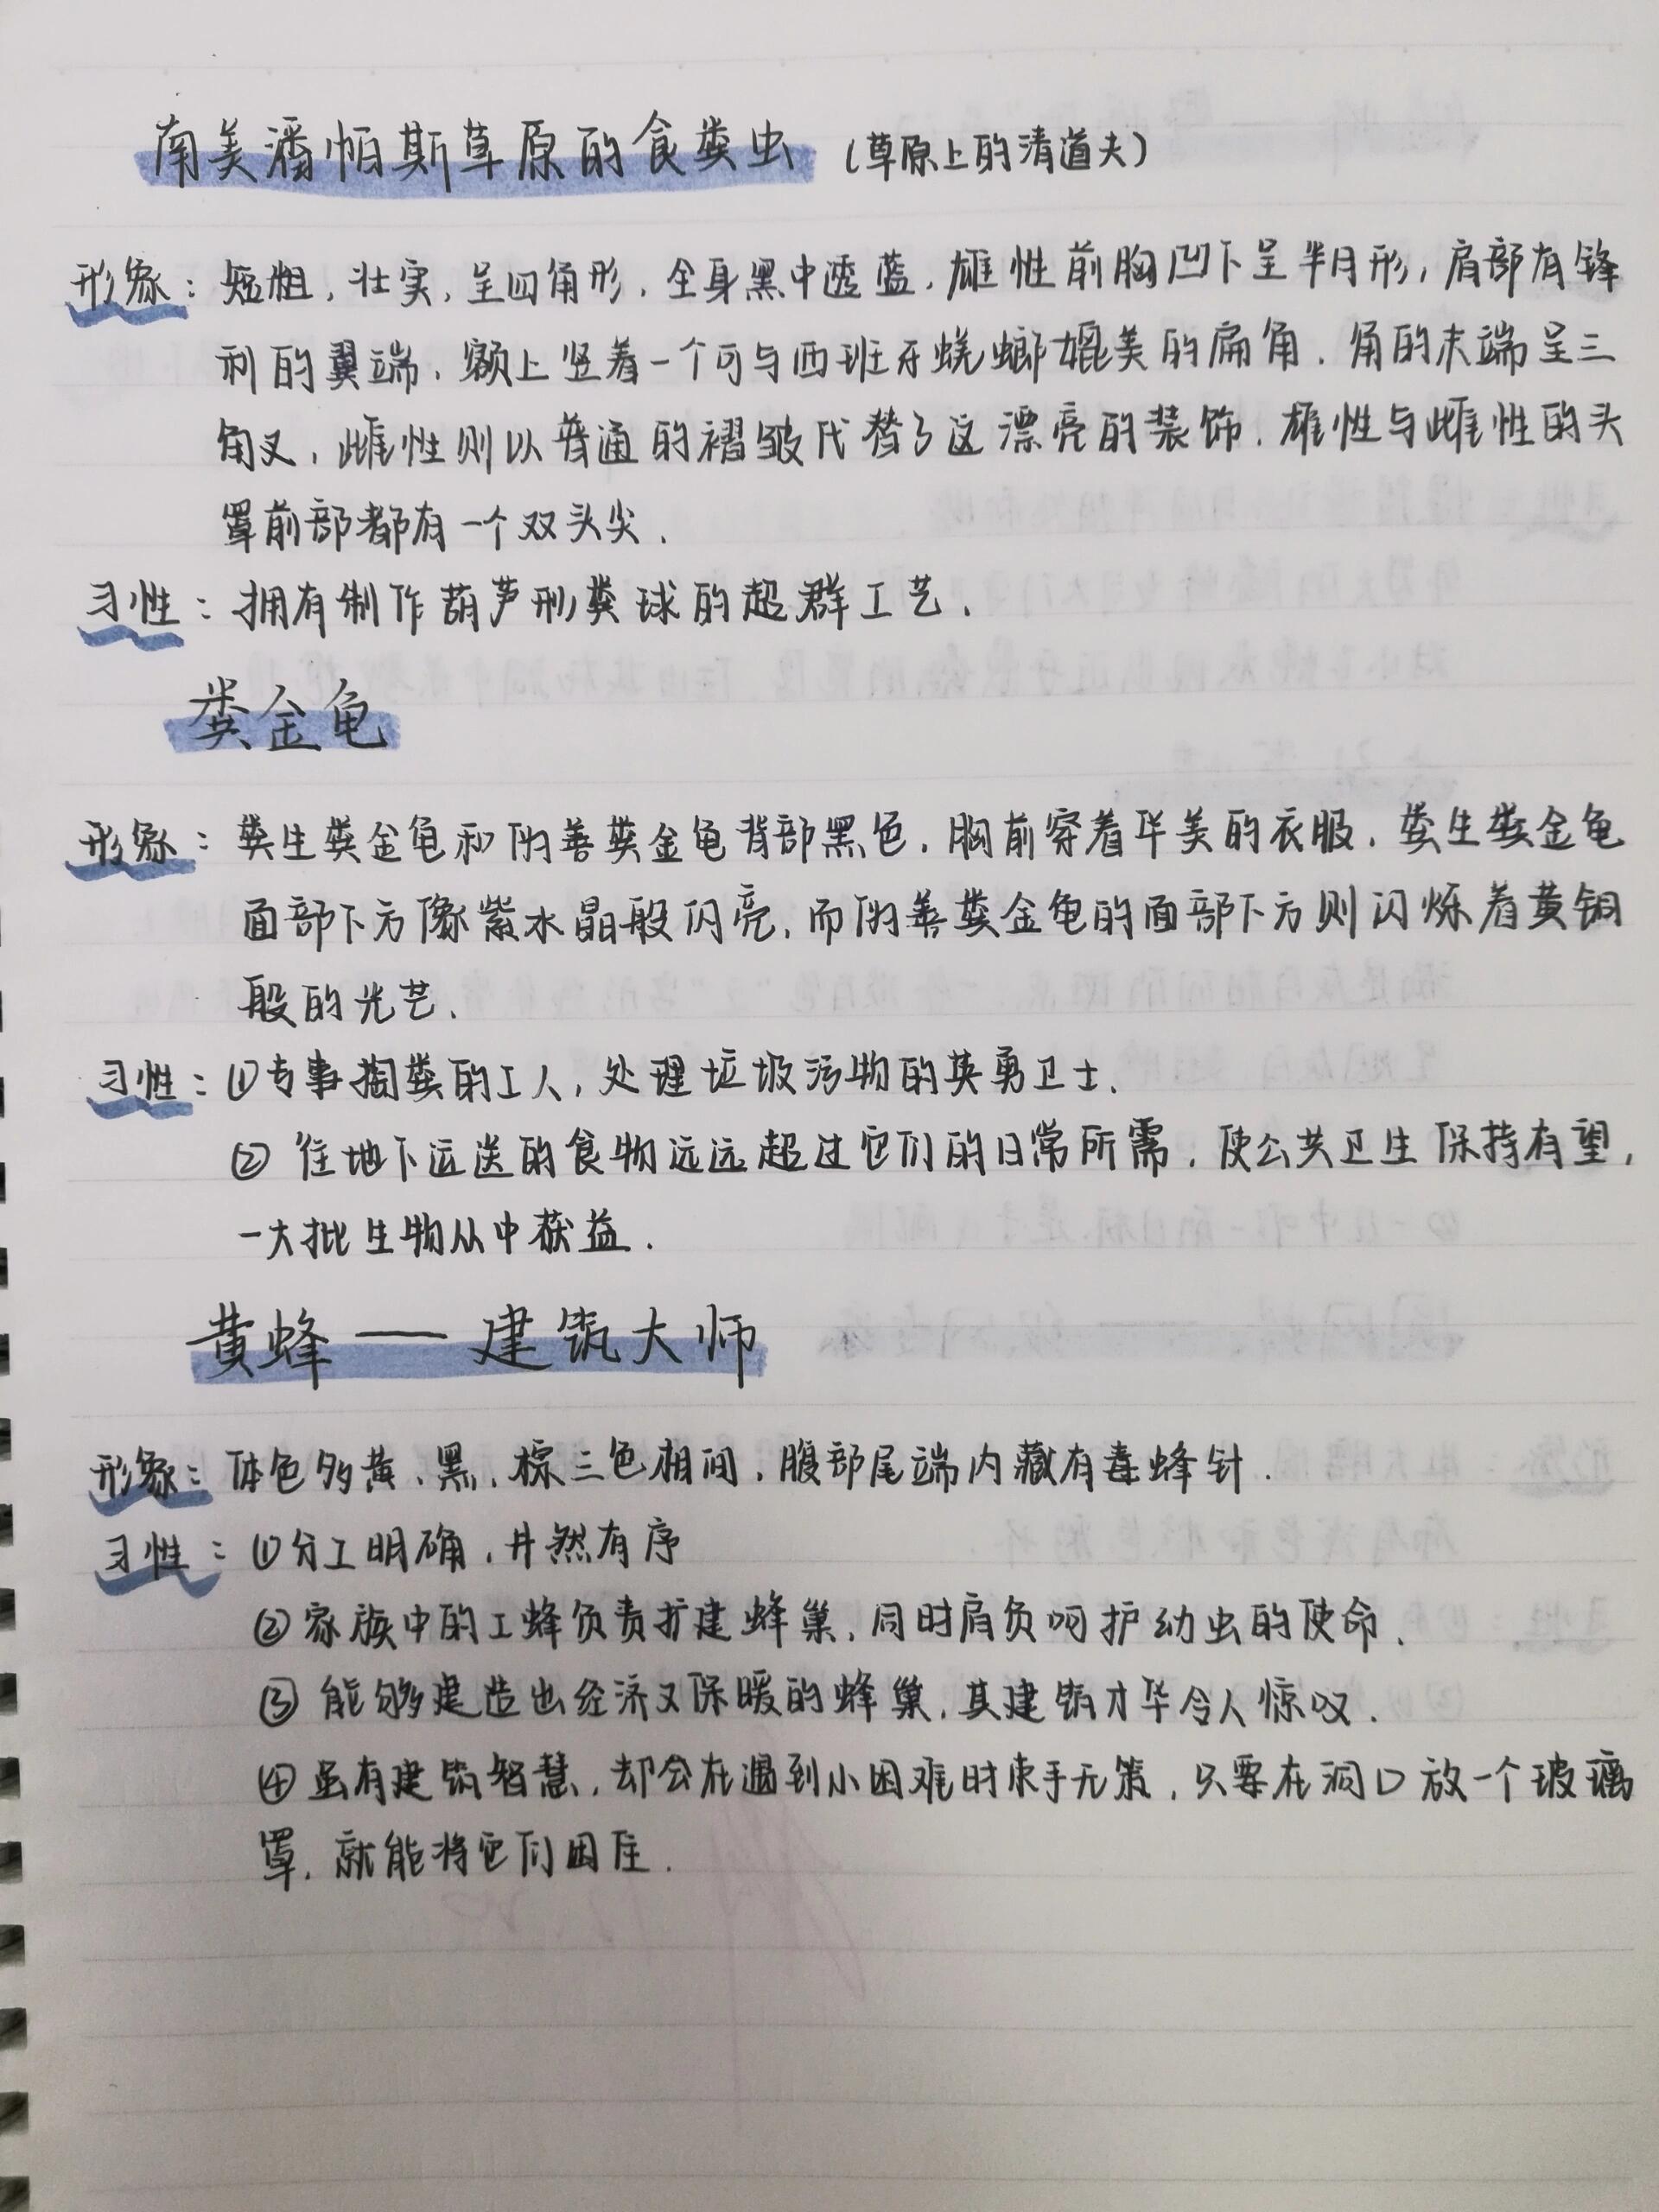 南美潘帕斯草原的食粪虫（草原上的清道夫）
形象：短粗，壮实，呈四角形，全身黑中透蓝，雄性前胸凹下呈半月形，肩部有锋
利的翼端，额上竖着一个可与西班牙蜣螂媲美的扁角，角的末端呈三
角叉，雌性则以普通的褶皱代替了这漂亮的装饰，雄性与雌性的头
罩前部都有一个双头尖.
习性：拥有制作葫芦形粪球的超群工艺.
粪金龟
形象：粪生粪金龟和伪善粪金龟背部黑色，胸前穿着华美的衣服，粪生粪金龟
面部下方像紫水晶般闪亮，而伪善粪金龟的面部下方则闪烁着黄铜
般的光芒.
习性：①专事掏粪的工人，处理垃圾污物的英勇卫士.
② 往地下运送的食物远远超过它们的日常所需，使公共卫生保持有望，
一大批生物从中获益.
黄蜂——建筑大师
形象：体色多黄、黑、棕三色相间，腹部尾端内藏有毒蜂针.
习性：①分工明确，井然有序
②家族中的工蜂负责扩建蜂巢，同时肩负呵护幼虫的使命.
③ 能够建造出经济又保暖的蜂巢，其建筑才华令人惊叹.
④虽有建筑智慧，却会在遇到小困难时束手无策，只要在洞口放一个玻璃
罩，就能将它们困住.